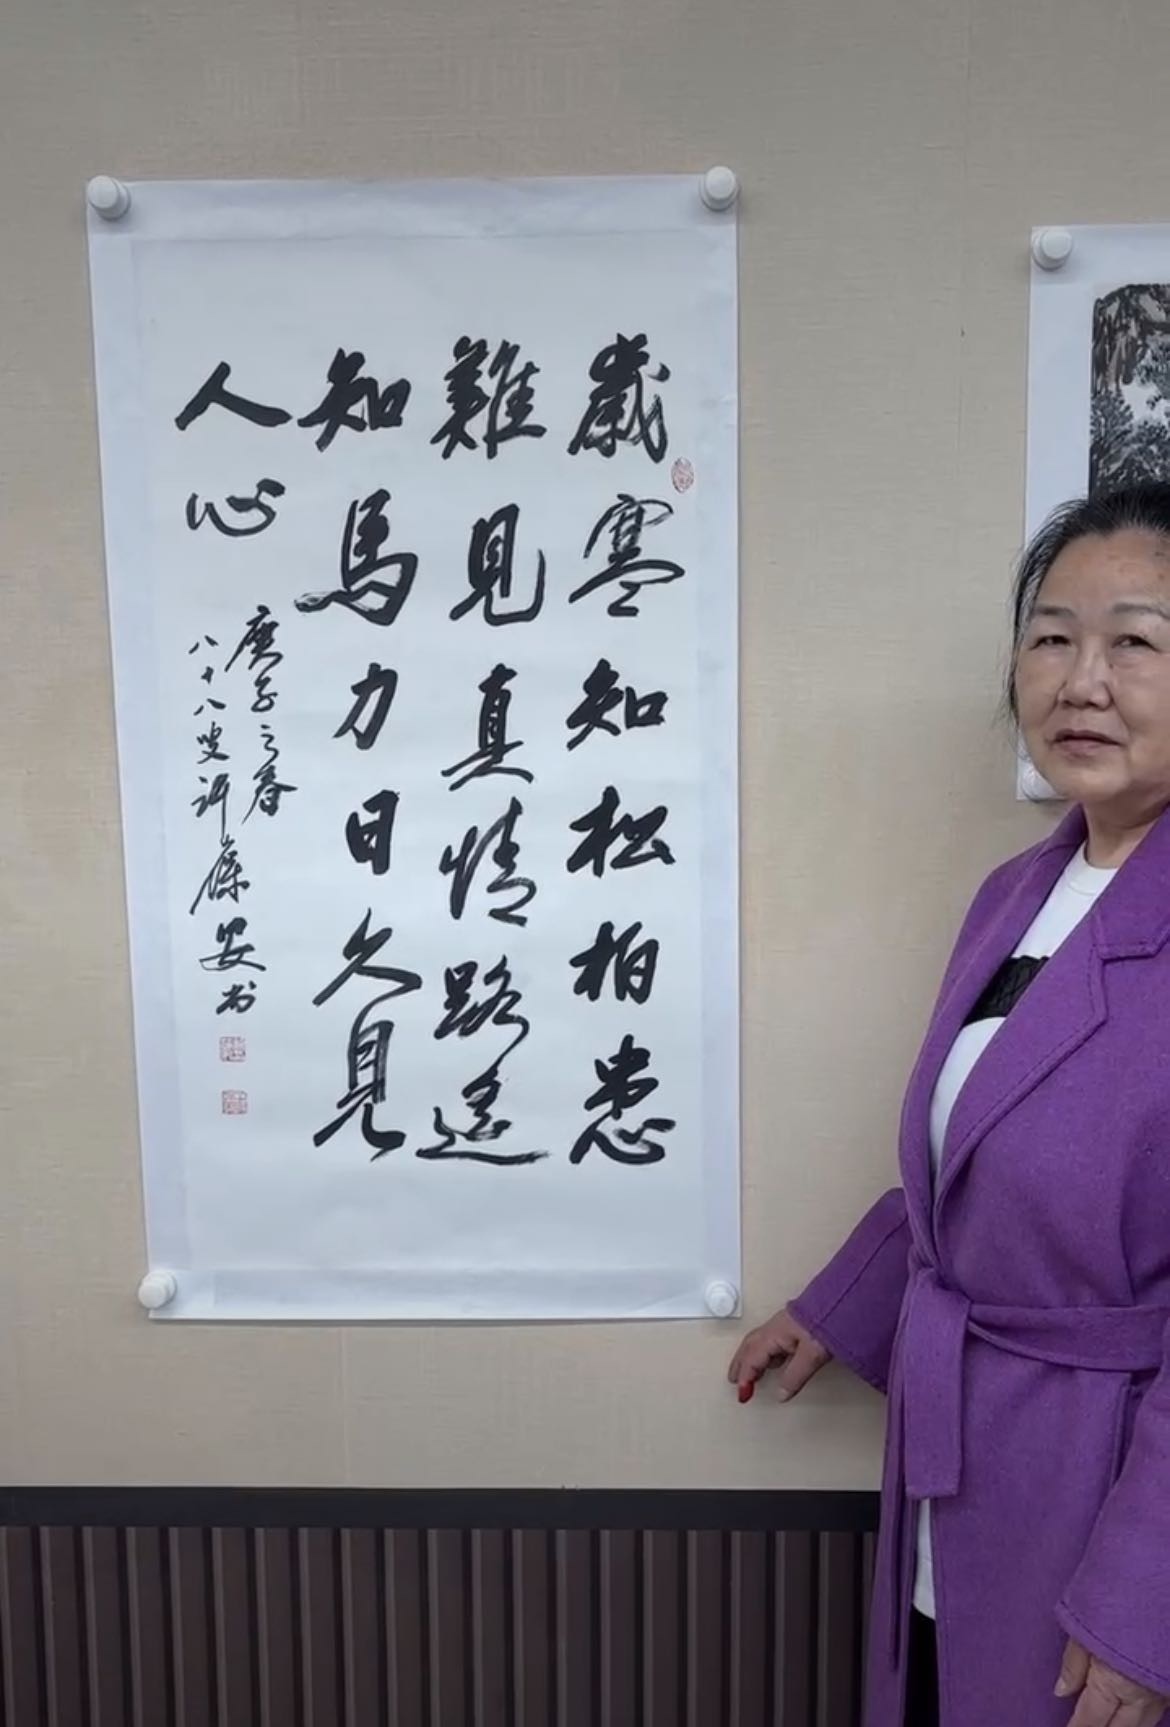 歲寒知松柏患
難見真情路遙
知馬力日久見
人心
庚子之春
八十八叟許葆安书